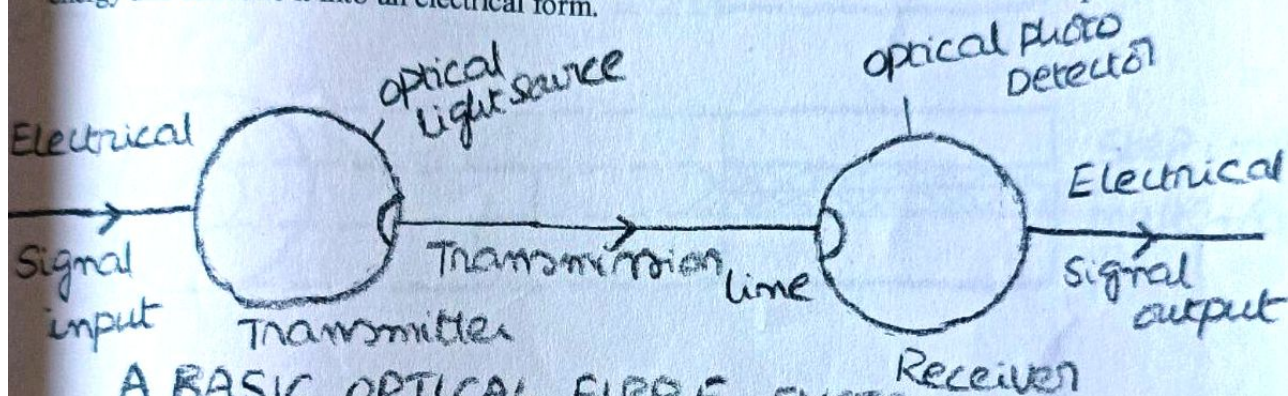 into an electrical form.
optical
light source
optical photo
Detector
Electrical
Signal
input
Transmitter
Transmission line
Electrical
Signal
output
Receiver
A BASIC OPTICAL FIBRE